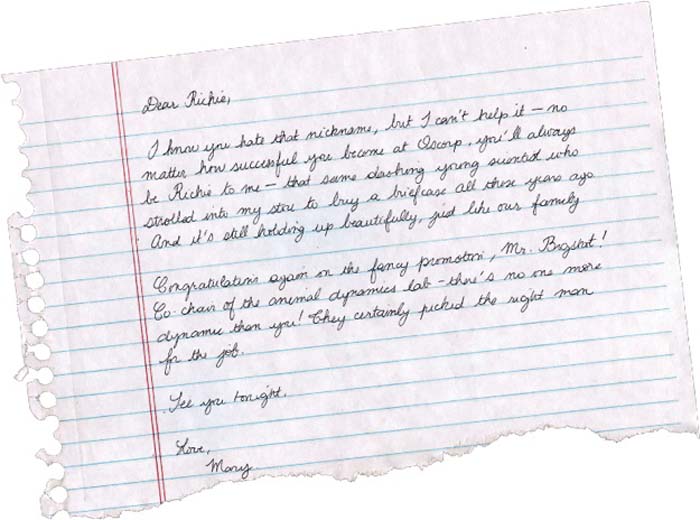 Dear Richie,
I know you hate that nickname, but I can't help it – no
matter how successful you become at Oscorp, you'll always
be Richie to me – that same dashing young scientist who
strolled into my store to buy a briefcase all those years ago.
And it's still holding up beautifully, just like our family
Congratulations again on the fancy promotion, Mr. Bigshot!
Co-chair of the animal dynamics lab – there's no one more
dynamic than you! They certainly picked the right man
for the job.
See you tonight.
Love,
Mary